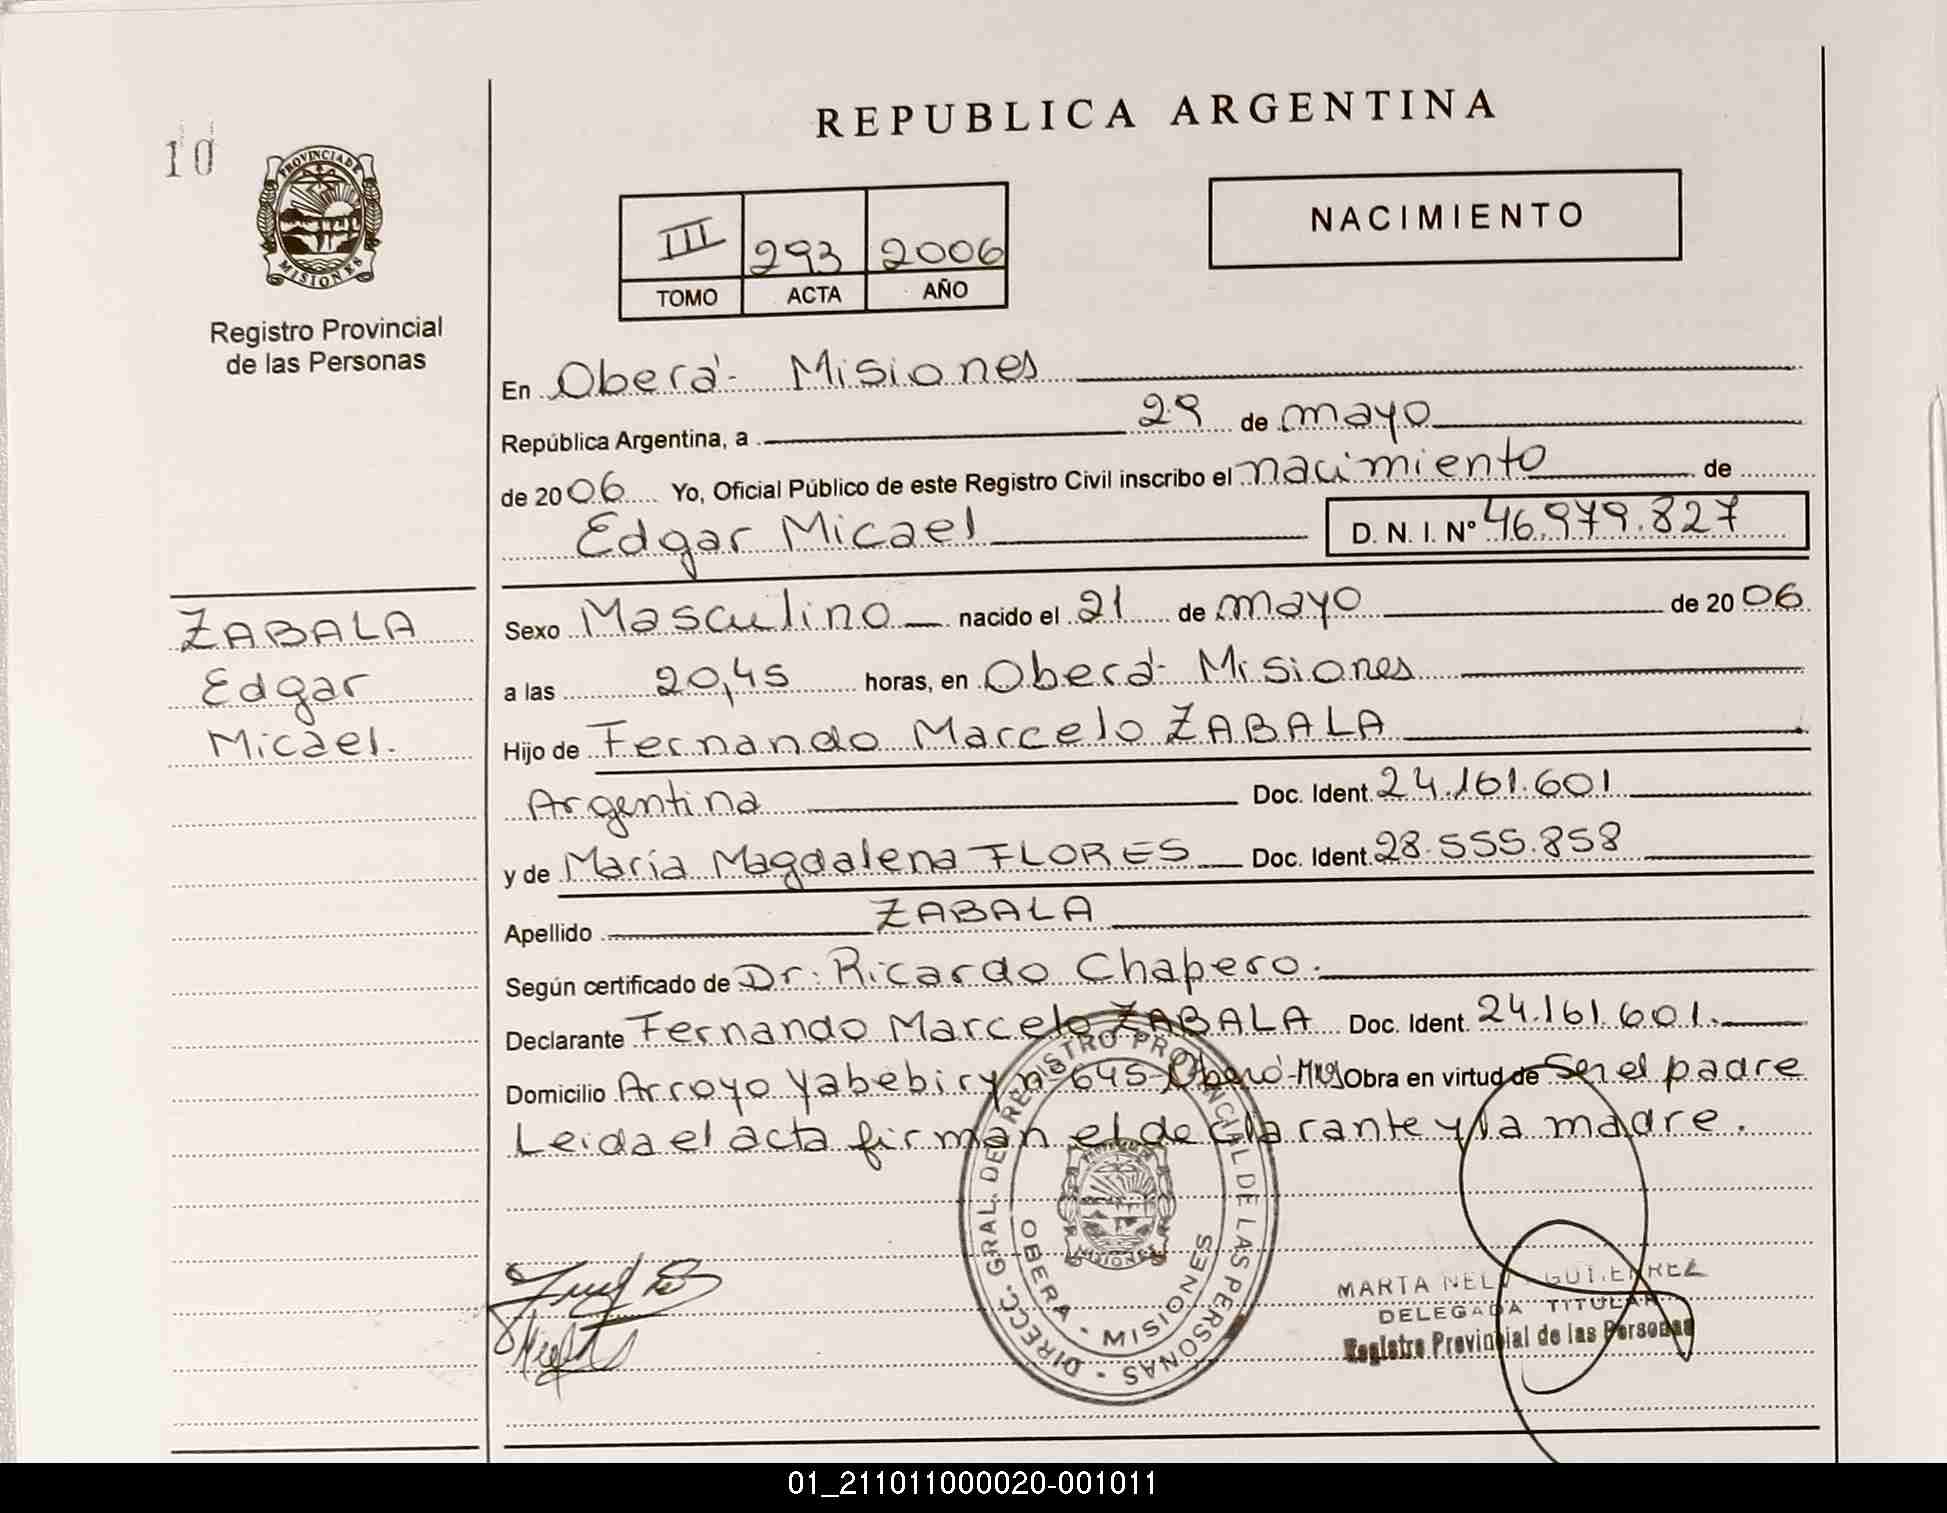 REPUBLICA ARGENTINA
10
PROVINCIA DE
MISIONES
Registro Provincial
de las Personas
III 293 2006
TOMO ACTA AÑO
NACIMIENTO
En Oberá - Misiones
República Argentina, a 29 de mayo
de 2006 Yo, Oficial Público de este Registro Civil inscribo el nacimiento de
Edgar Micael D. N. I. Nº 46.979.827
ZABALA
Edgar
Micael.
Sexo Masculino nacido el 21 de mayo de 2006
a las 20,45 horas, en Oberá - Misiones
Hijo de Fernando Marcelo ZABALA
Argentina Doc. Ident. 24.161.601
y de María Magdalena FLORES Doc. Ident. 28.555.858
Apellido ZABALA
Según certificado de Dr. Ricardo Chapero.
Declarante Fernando Marcelo ZABALA Doc. Ident. 24.161.601.
Domicilio Arroyo Yabebiry nº 645 - Oberá - Mns Obra en virtud de Ser el padre
Leida el acta firman el declarante y la madre.
DIRECC. GRAL. DE REGISTRO PROVINCIAL DE LAS PERSONAS
OBERA - MISIONES
MISIONES
MARTA GUTIERREZ
DELEGADA TITULAR
Registro Provincial de las Personas
01_211011000020-001011